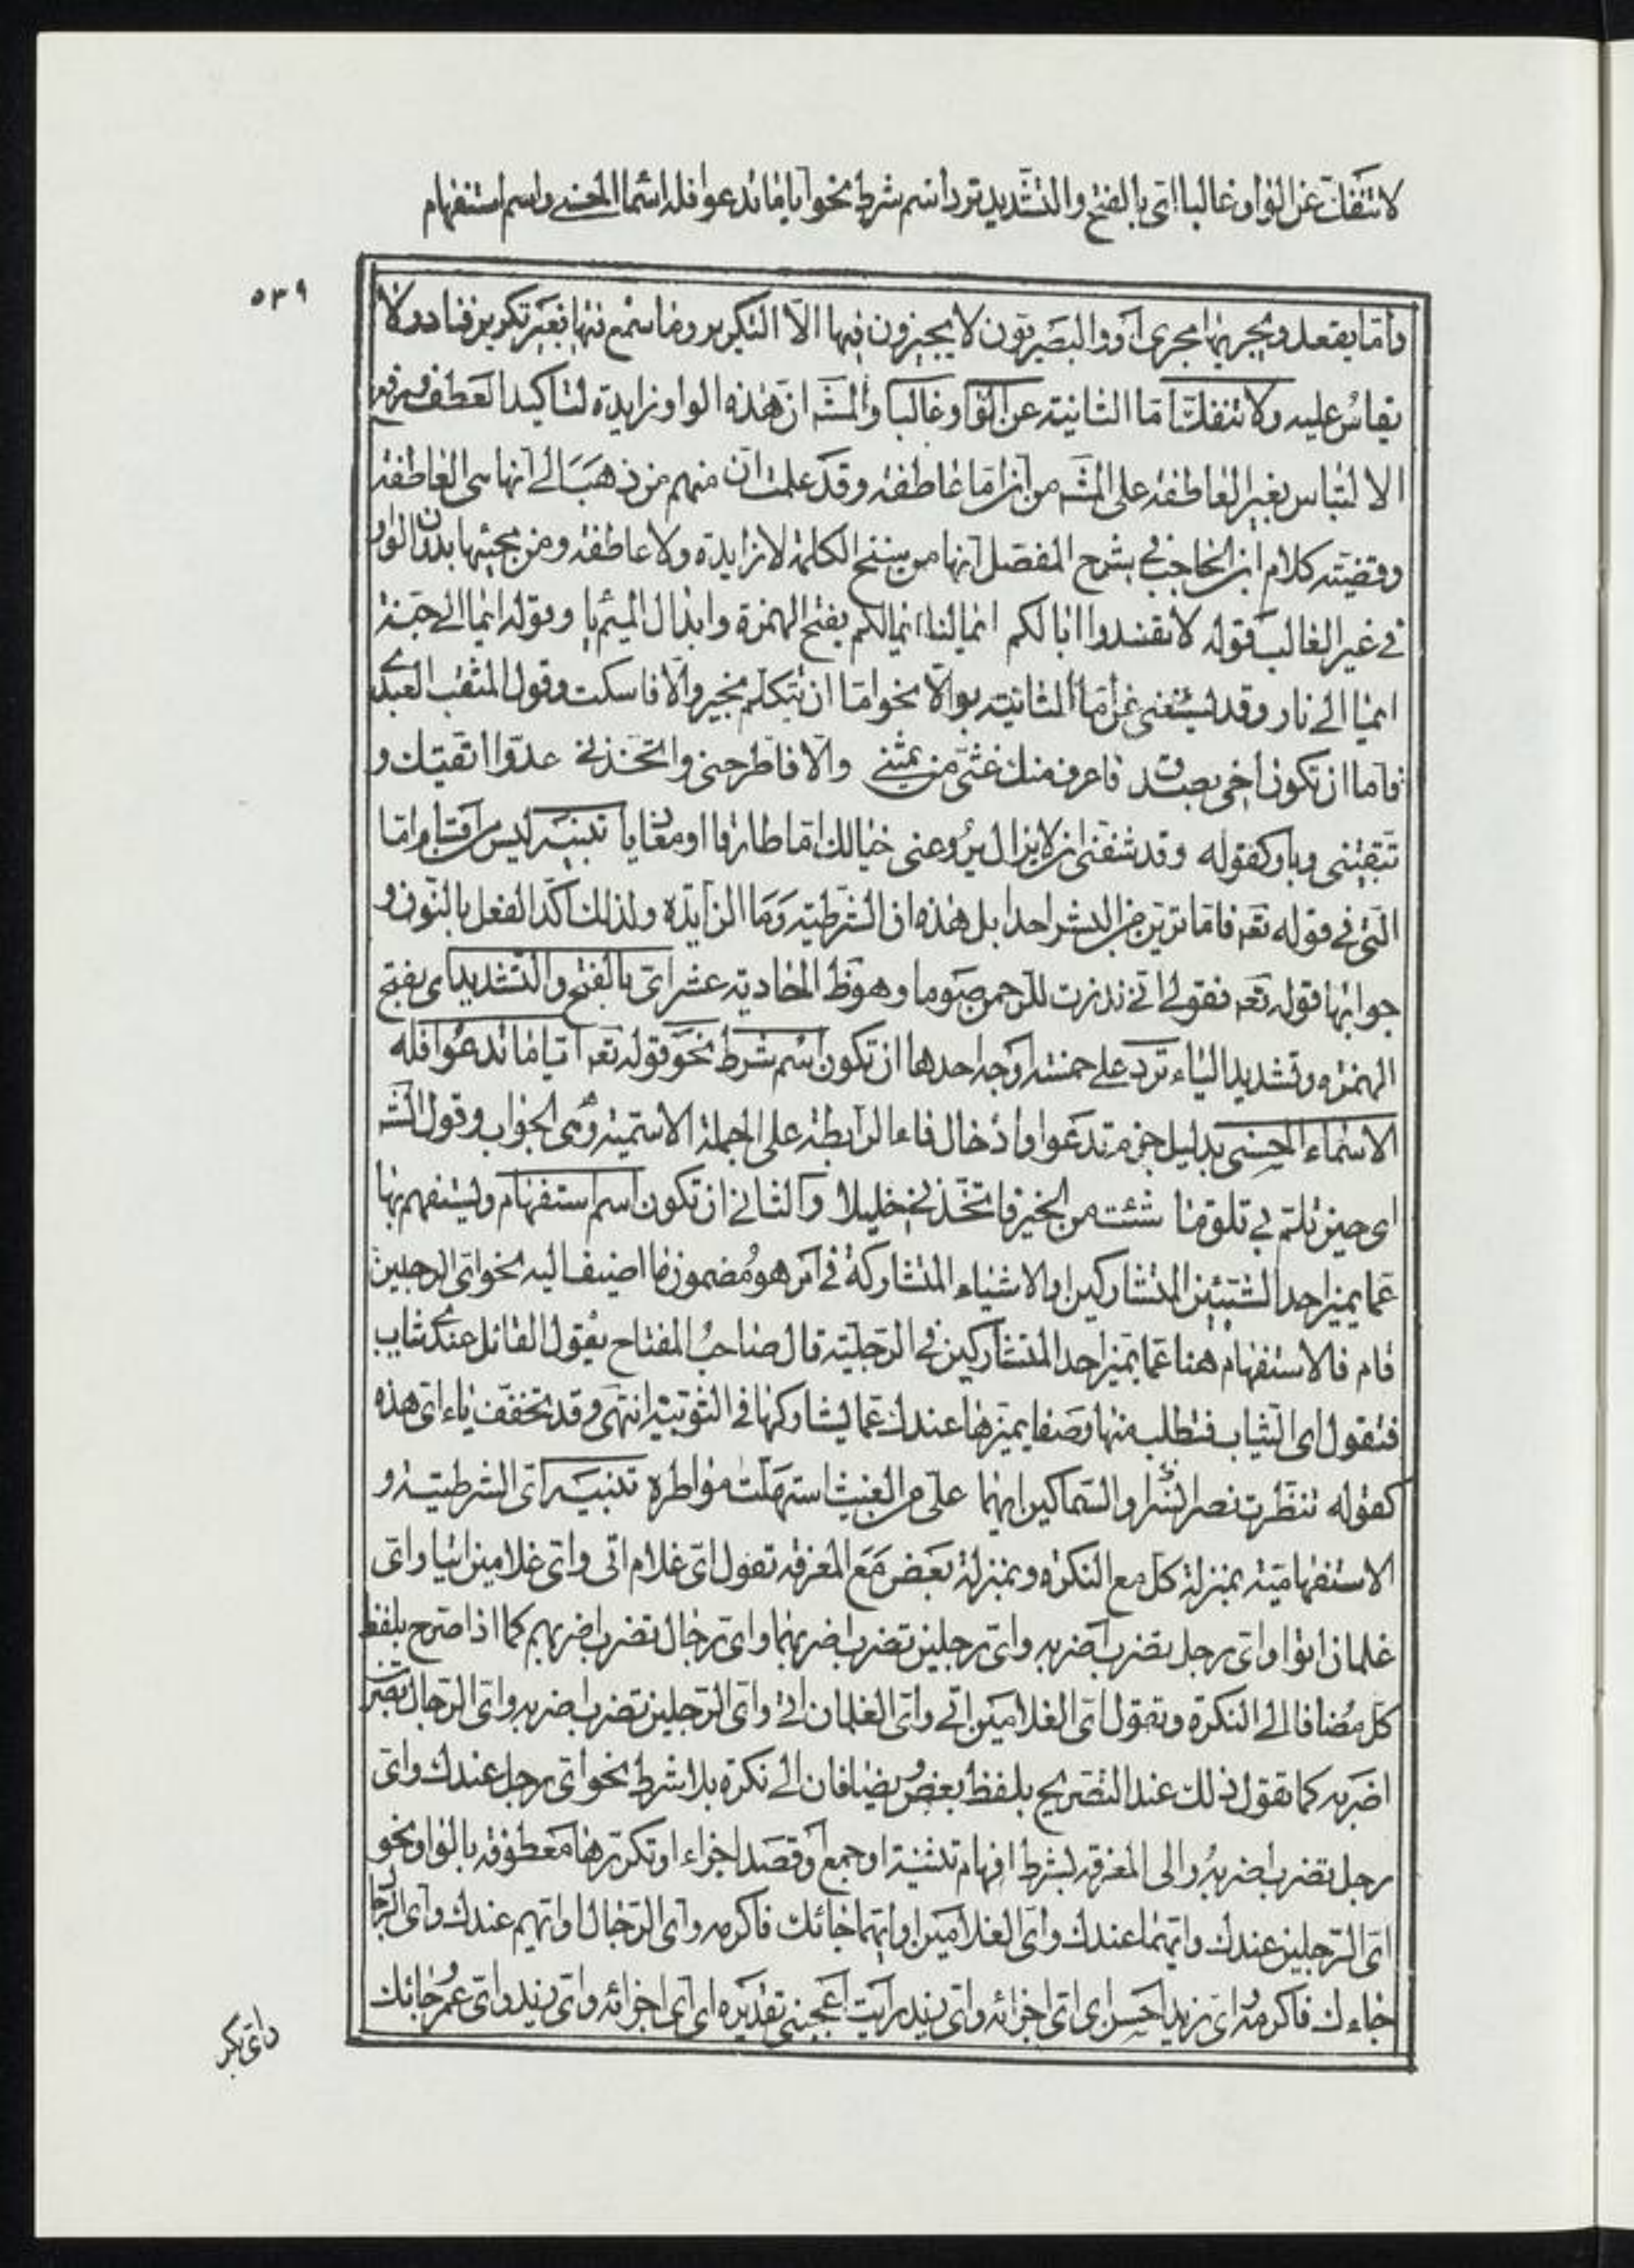 لا تنفك عن الواو غالبا اي بالفتح والتشديد ترد اسم شرط نحو ايا ما تدعوا فله الاسماء الحسنى واسم استفهام
٥٣٩
واما يقعد ويجريها مجرى او والبصريون لا يجيزون فيها الا التكرير وما سمع فيها بغير تكرير فنادر ولا
يقاس عليه ولا تنفك اما الثانية عن الواو غالبا والمشه ان هذه الواو زايدة لتاكيد العطف
الالتباس بغير العاطفة على المشه من ان اما عاطفة وقد علمت ان منهم من ذهب الى انها هى العاطفة
وقضيته كلام ابن الحاجب في شرح المفصل انها من سنخ الكلمة لا زايدة ولا عاطفة ومن مجيئها بدون الواو
في غير الغالب قوله لا تفسدوا ابالكم ايما لنا ايما لكم بفتح الهمزة وابدال الميم يا وقوله ايما الى جنة
ايما الى نار وقد يستغنى عن اما الثانية بوالا نحو اما ان تتكلم بخير والا فاسكت وقول المثقب العبدي
فاما ان تكون اخي بصدق فاعرف منك غثي من ثميني والا فاطرحني واتخذني عدوا اتقيك و
تتقيني وباو كقوله وقد شفني ان لا يزال يروعني خيالك اما طارقا او مغاديا تنبيه ليس من اقسام اما
التي في قوله تعه فاما ترين من البشر احدا بل هذه ان الشرطية وما الزايدة ولذلك اكد الفعل بالنون و
جوابها قوله تعه فقولي اني نذرت للرحمن صوما وهو ظ الحادية عشر اي بالفتح والتشديد اى بفتح
الهمزه وتشديد الياء ترد على خمسة اوجه احدها ان تكون اسم شرط نحو قوله تعه ايا ما تدعوا فله
الاسماء الحسنى بدليل جزم تدعوا وادخال فاء الرابطة على الجملة الاسمية وهى الجواب وقول الشه
اى حين تلم بي تلق ما شئت من الخير فاتخذني خليلا والثاني ان تكون اسم استفهام ويستفهم بها
عما يميز احد الشيئين المتشاركين او الاشياء المتشاركة في امر هو مضمون ما اضيف اليه نحو اى الرجلين
قام فالاستفهام هنا عما يميز احد المتشاركين في الرجلية قال صاحب المفتاح يقول القائل عندي ثياب
فتقول اى الثياب فتطلب منها وصفا يميزها عندك عما يشاركها في الثوبية انتهى وقد تخفف ياء اى هذه
كقوله تنظرت نصرا والسماكين ايهما على من الغيث استهلت مواطره تنبيه اى الشرطية و
الاستفهامية بمنزلة كل مع النكرة وبمنزلة بعض مع المعرفة تقول اى غلام اتى واى غلامين اتيا واى
غلمان اتوا واى رجل تضرب اضربه واى رجلين تضرب اضربهما واى رجال تضرب اضربهم كما اذا صرح بلفظ
كل مضافا الى النكرة وتقول اى الغلامين اتى واى الغلمان اتى واى الرجلين تضرب اضربه واى الرجال تضرب
اضربه كما تقول ذلك عند التصريح بلفظ بعض ويضافان الى نكرة بلا شرط نحو اى رجل عندك واى
رجل تضرب اضربه والى المعرفة بشرط افهام تثنية او جمع او قصد اجزاء او تكريرها معطوفة بالواو نحو
اى الرجلين عندك وايهما عندك واى الغلامين او ايهما جائك فاكرمه واى الرجال او ايهم عندك واى الرجال
جاءك فاكرمه اى زيد احسن اى اى اجزائه واى زيد رايت اعجبني تقديره اى اى اجزائه واى زيد واى عمرو جائك
واى بكر